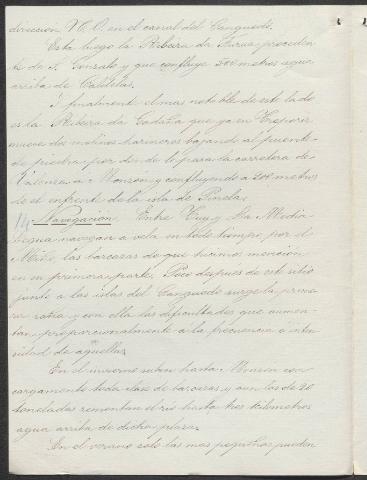 direccion N.E.O. en el canal del Canguedo.
Esta luego la Ribeira da Furna proceden
te de S. Gonzalo y que confluye 500 metros agua
arriba de Caldelas.
Y finalmente el mas notable de este lado
es la Ribeira da Gadaña que ya en
mueve dos molinos harineros bajando al puente
de piedra por donde lo pasa la carretera de
Valenza á Monzón y confluyendo á 200 metros
de el enfrente de la isla de
14 Navegación. Entre Tuy y La Media
legua navegan a vela en todo tiempo, por el
Miño, las barcazas de que hicimos mención
en su primera parte. Poco despues de este sitio
junto a las islas del Canguedo surge la prime
ra rabia y con ella las dificultades que aumen-
tan proporcionalmente a la frecuencia e inten
sidad de aquellas.
En el invierno suben hasta Monzon con
cargamento toda clase de barcazas, y aun las de 20
toneladas remontan el rio hasta tres kilometros
agua arriba de dicha plaza.
En el verano solo las mas pequeñas pueden